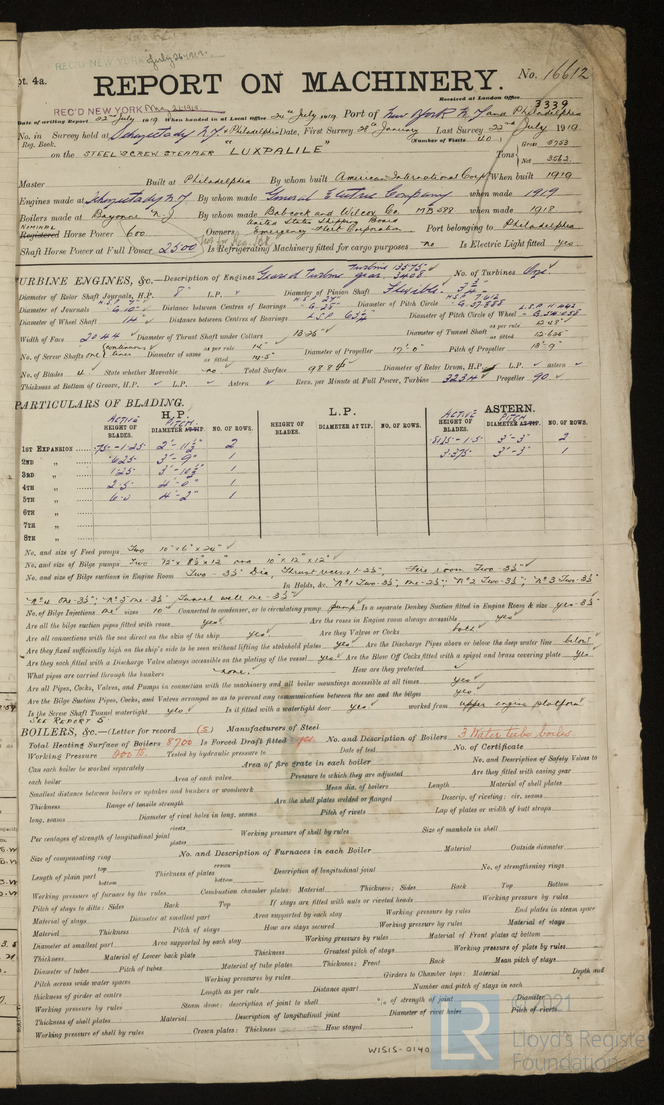 REC'D NEW YORK July 26-1919.
pt. 4a.
REPORT ON MACHINERY.
No. 16612
Received at London Office
REC'D NEW YORK May 21-1919
3339
Date of writing Report 22nd July 1919 When handed in at Local Office July 1919 Port of New York N.Y. and Philadelphia
No. in Survey held at Schenectady N.Y. & Philadelphia Date, First Survey January Last Survey 22nd July 1919
Reg. Book.
(Number of Visits 40)
on the STEEL SCREW STEAMER "LUXPALILE"
Tons Gross 5753
Net 3562
Master Built at Philadelphia By whom built American International Corp When built 1919
Engines made at Schenectady N.Y. By whom made General Electric Company when made 1919
Boilers made at Bayonne N.J. By whom made Babcock and Wilcox Co. when made 1918
NOMINAL
Registered Horse Power 600 Owners United States Shipping Board Emergency Fleet Corporation Port belonging to Philadelphia
Shaft Horse Power at Full Power 2500 Is Refrigerating Machinery fitted for cargo purposes no Is Electric Light fitted yes
TURBINE ENGINES, &c.—Description of Engines Geared Turbine No. of Turbines One
Diameter of Rotor Shaft Journals, H.P. 8" L.P. Diameter of Pinion Shaft Flexible.
Diameter of Journals Distance between Centres of Bearings Diameter of Pitch Circle
Diameter of Wheel Shaft 14" Distance between Centres of Bearings Diameter of Pitch Circle of Wheel
Width of Face Diameter of Thrust Shaft under Collars 13.25" Diameter of Tunnel Shaft as per rule 12.48" as fitted 12.625"
No. of Screw Shafts one Diameter of same as per rule 14" as fitted 14.5" Diameter of Propeller 17'-0" Pitch of Propeller
No. of Blades 4 State whether Moveable no Total Surface Diameter of Rotor Drum, H.P. L.P. astern
Thickness at Bottom of Groove, H.P. L.P. Astern Revs. per Minute at Full Power, Turbine Propeller 90
PARTICULARS OF BLADING.
H.P. L.P. ASTERN.
ACTIVE PITCH ACTIVE PITCH
HEIGHT OF BLADES. DIAMETER AT TIP. NO. OF ROWS. HEIGHT OF BLADES. DIAMETER AT TIP. NO. OF ROWS. HEIGHT OF BLADES. DIAMETER AT TIP. NO. OF ROWS.
1ST EXPANSION .75-1.25 2'-11½" 2 3'-3" 2
2ND " .625 3'-9" 1 3.375 3'-3" 1
3RD " 1.25 1
4TH " 2.5 4'-0" 1
5TH " 6.0 4'-2" 1
6TH "
7TH "
8TH "
No. and size of Feed pumps Two 10"x6"x24"
No. and size of Bilge pumps Two 12"x8½"x12" one 10"x12"x12"
No. and size of Bilge suctions in Engine Room Two-3½" Dia, Thrust recess 1-2½, Fire room Two-3½"
In Holds, &c. No 1 Two-3½", one-2½"; No 2 Two-3½", No 3 Two-3½"
No 4 One-3½"; No 5 One-3½" Tunnel well one-3½"
No. of Bilge Injections One sizes 10" Connected to condenser, or to circulating pump pump Is a separate Donkey Suction fitted in Engine Room & size yes-3½
Are all the bilge suction pipes fitted with roses yes Are the roses in Engine room always accessible yes
Are all connections with the sea direct on the skin of the ship yes. Are they Valves or Cocks both
Are they fixed sufficiently high on the ship's side to be seen without lifting the stokehold plates yes Are the Discharge Pipes above or below the deep water line below
Are they each fitted with a Discharge Valve always accessible on the plating of the vessel yes Are the Blow Off Cocks fitted with a spigot and brass covering plate yes
What pipes are carried through the bunkers none. How are they protected
Are all Pipes, Cocks, Valves, and Pumps in connection with the machinery and all boiler mountings accessible at all times yes
Are the Bilge Suction Pipes, Cocks, and Valves arranged so as to prevent any communication between the sea and the bilges yes
Is the Screw Shaft Tunnel watertight yes Is it fitted with a watertight door yes worked from upper engine platform
SEE REPORT 5
BOILERS, &c.—(Letter for record (S) Manufacturers of Steel
Total Heating Surface of Boilers 8700 Is Forced Draft fitted yes. No. and Description of Boilers 3 Water tube boilers
Working Pressure 200 lb. Tested by hydraulic pressure to Date of test No. of Certificate
Can each boiler be worked separately Area of fire grate in each boiler No. and Description of Safety Valves to
each boiler Area of each valve Pressure to which they are adjusted Are they fitted with easing gear
Smallest distance between boilers or uptakes and bunkers or woodwork Mean dia. of boilers Length Material of shell plates
Thickness Range of tensile strength Are the shell plates welded or flanged Descrip. of riveting: cir. seams
long. seams Diameter of rivet holes in long. seams Pitch of rivets Lap of plates or width of butt straps
Per centages of strength of longitudinal joint rivets plates Working pressure of shell by rules Size of manhole in shell
Size of compensating ring No. and Description of Furnaces in each Boiler Material Outside diameter
Length of plain part top bottom Thickness of plates crown bottom Description of longitudinal joint No. of strengthening rings
Working pressure of furnace by the rules Combustion chamber plates: Material Thickness: Sides Back Top Bottom
Pitch of stays to ditto: Sides Back Top If stays are fitted with nuts or riveted heads Working pressure by rules
Material of stays Diameter at smallest part Area supported by each stay Working pressure by rules End plates in steam space
Material Thickness Pitch of stays How are stays secured Working pressure by rules Material of stays
Diameter at smallest part Area supported by each stay Working pressure by rules Material of Front plates at bottom
Thickness Material of Lower back plate Thickness Greatest pitch of stays Working pressure of plate by rules
Diameter of tubes Pitch of tubes Material of tube plates Thickness: Front Back Mean pitch of stays
Pitch across wide water spaces Working pressures by rules Girders to Chamber tops: Material Depth and
thickness of girder at centre Length as per rule Distance apart Number and pitch of stays in each
Working pressure by rules Steam dome: description of joint to shell % of strength of joint Diameter
Thickness of shell plates Material Description of longitudinal joint Diameter of rivet holes Pitch of rivets
Working pressure of shell by rules Crown plates: Thickness How stayed
W1515-0140
LR
© 2021
Lloyd's Register
Foundation